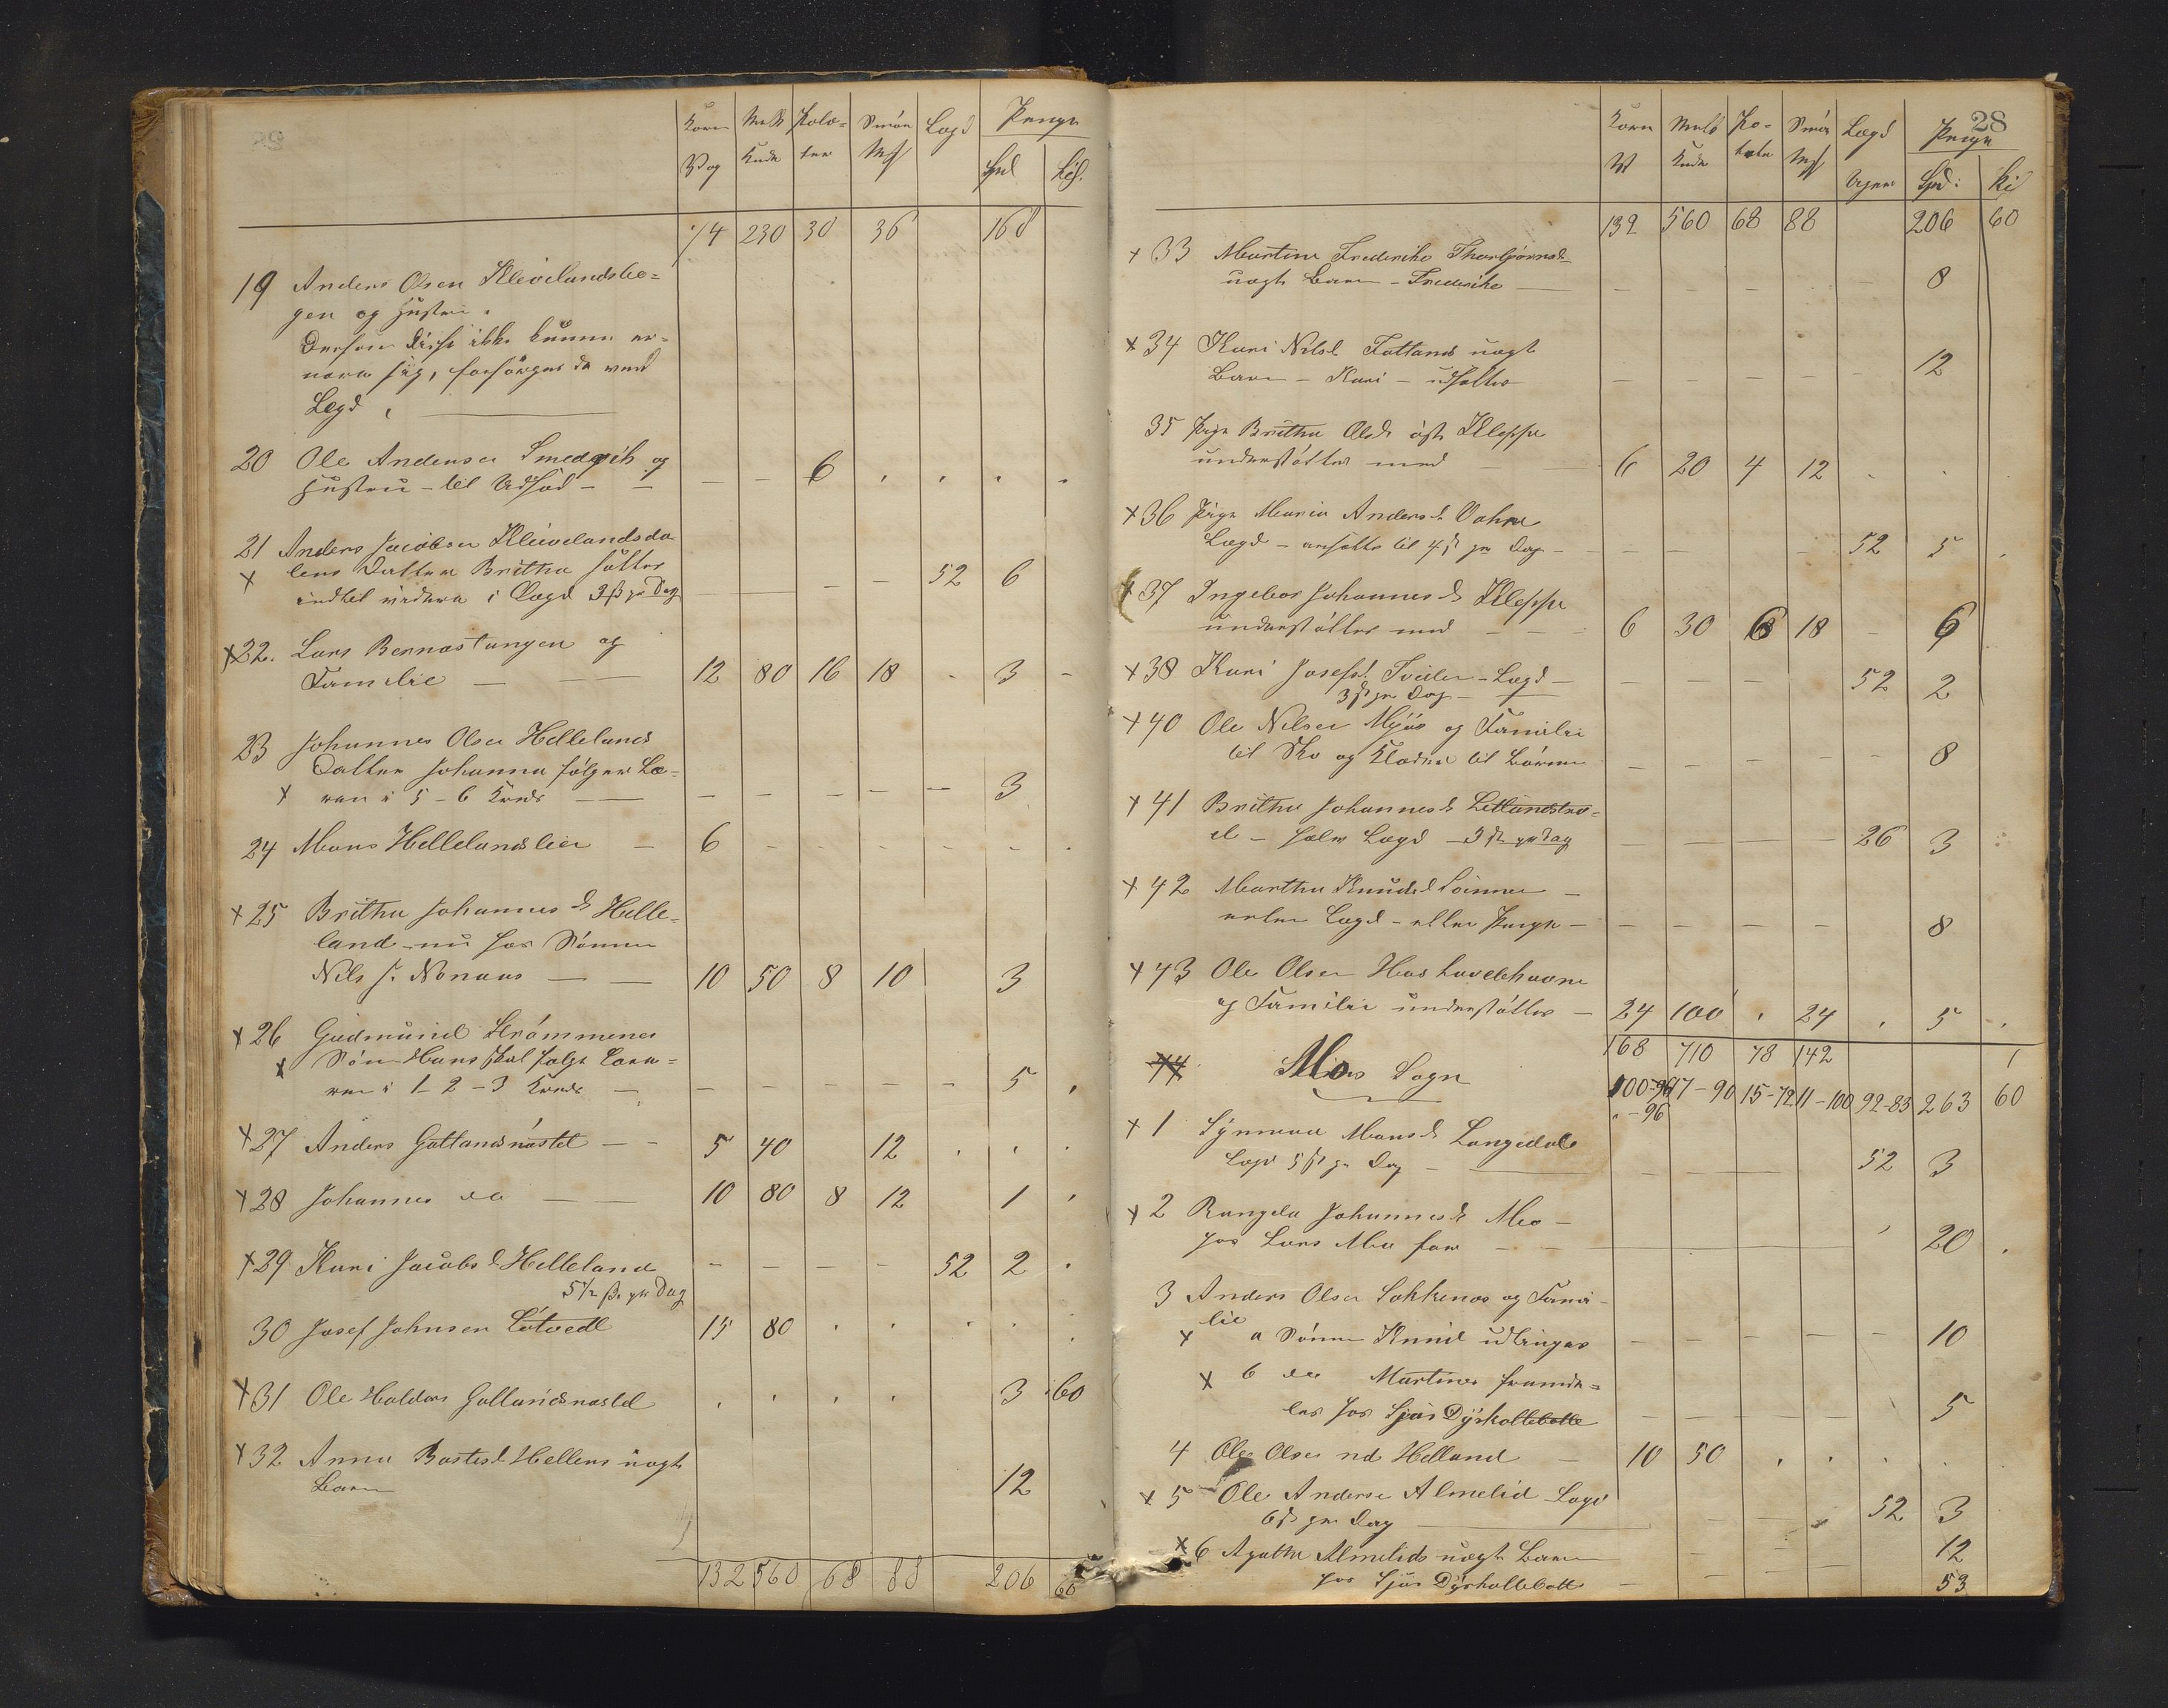 Korn Melk Pote- Smør Lægd Penge
Vog Kude ter Mk Spd Sk.
74 230 30 36 168
19 Anders Olsen Klevelandsbo-
gen og Hustru.
Dersom disse ikke kunne er-
nære sig, forsørges de ved
Lægd,
20 Ole Andersen Smedvik og
Hustru - til Udsæd - — — — 6
21 Anders Jacobsen Klevelandsda-
x lens Datter Britha sættes
indtil videre i Lægd 3 ß pr Dag — — — — 52 6
x 22. Lars Bernastangen og
Familie — — 12 80 16 18 - 3 -
23 Johannes Olsen Hellelands
Datter Johanna følger Læ-
x ren i 5-6 Kreds — — — — — — 3
24 Mons Hellelandslien — 6
x 25 Britha Johannesd Helle-
land - nu hos Sønnen
Nils J. Nonaas — — 10 50 8 10 3
x 26 Gudmund Strømmenes
x Søn Hans skal følge Læra-
ren i 1-2-3 Kreds — — — — — — 5
x 27 Anders Gatlandsnæstet — - 5 40 12
x 28 Johannes do — — 10 80 8 12 1
x 29 Kari Jacobsd Helleland — — — — 52 2
5 1/2 ß. pr Dag
30 Josef Johnsen Løtvedt 15 80
x 31 Ole Haldors Gatlandsnæstet 3 60
x 32 Anna Bastesd Hellens uægte
Barn 12
132 560 68 88 206 60
28
Korn Melk Po- Smør Lægd Penge
W Kude teter Mk Uger Spd: Sk
132 560 68 88 206 60
x 33 Martine Frederike Thorbjørnsd-
uægte Barn - Frederike — — — — — 8
x 34 Kari Nilsd Fatland uægte
Barn - Kari - udsættes — — — — — 12
35 Pige Britha Olsd øst Kleppe
understøttes med — 6 20 4 12
x 36 Pige Maria Andersd. Vahne
Lægd - ansættes til 4 ß pr Dag - — — — 52 5
x 37 Ingebor Johannesd Kleppe
understøttes med — — 6 30 6 18 - 6
x 38 Kari Josefsd Tveiten - Lægd — — — — 52 2
3 ß pr Dag —
x 40 Ole Nilsen Mjøs og Familie
til Sko og Klæder til Børnene — — — — — 8
x 41 Britha Johannesd Litlandstræ-
et - halv Lægd - 3 ß pr Dag — — — — 26 3
x 42 Martha Knudsd Loinner —
enten Lægd - eller Penge — — — — — 8
x 43 Ole Olsen Haskavelehavne
og Familie understøttes — 24 100 24 5
168 710 78 142
44 Mo Sogn 100-96 17-90 15-72 11-100 92-83 263 60
- 96
x 1 Synneva Monsd Langedale
Lægd 5 ß pr Dag — — — — — 52 3
x 2 Rangela Johannesd Mo —
hos Lars Mo faar — — 20
3 Anders Olsen Sakkenæs og Fami-
lie
x a Sønnen Knud udtinges — — — — — 10
x b do Martines fremde-
les hos Sjur Dyrkollebotten — — — — 5
4 Ole Olsen nd Helland — 10 50
x 5 Ole Anderse Almelid Lægd
6 ß pr Dag — — — — 52 3
x 6 Agatha Almelids uægte Barn 12
hos Sjur Dyrkollebotten — — — —
53